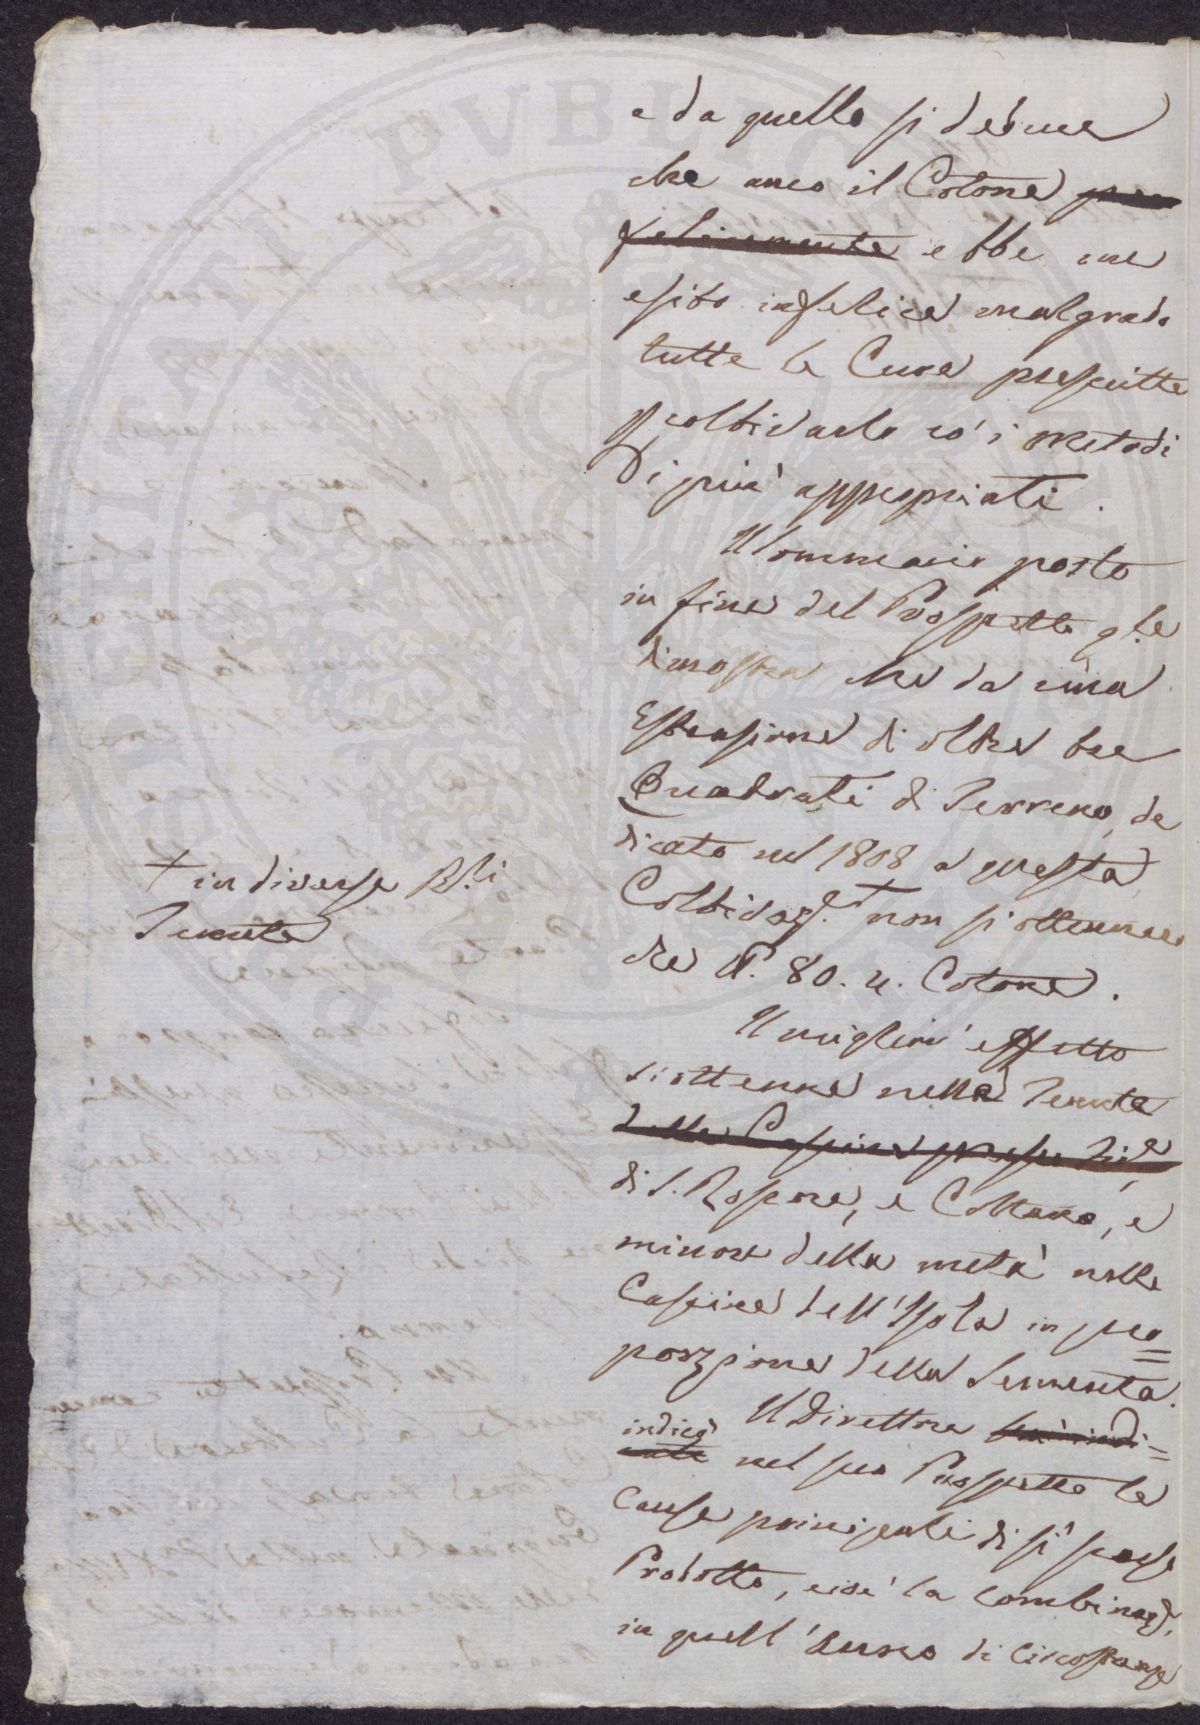 e da quello si deduce
che anco il Cotone
felicemente ebbe un
esito infelice malgrado
tutte le Cure prescritte
p coltivarlo co' i metodi
i più appropriati.
Il Sommario posto
in fine del Prospetto gle
dimostra che da una
Estensione di oltre tre
Quadrati di Terreno, de
dicato nel 1808 a questa
+ in diverse RRli
Tenute
Coltivaz.e + non si ottennero
che 80. Cotone.
Il miglior effetto
si ottenne nella Tenuta
delle Cascine presso
di S. Rossore, e Coltano, e
minore della metà nelle
Cascine dell'Isola in pro=
porzione della Sementa.
Il Direttore
indicò
nel suo Prospetto le
Cause principali di sì scarso
Prodotto, cioè la combinaz.e
in quell'Anno di Circostanze
PVBLIC